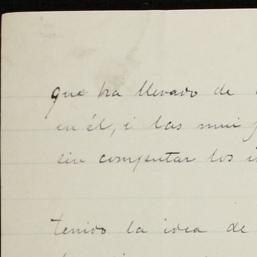 que ha llevado de
en él, i las mui
sin computar los
tenido la idea de